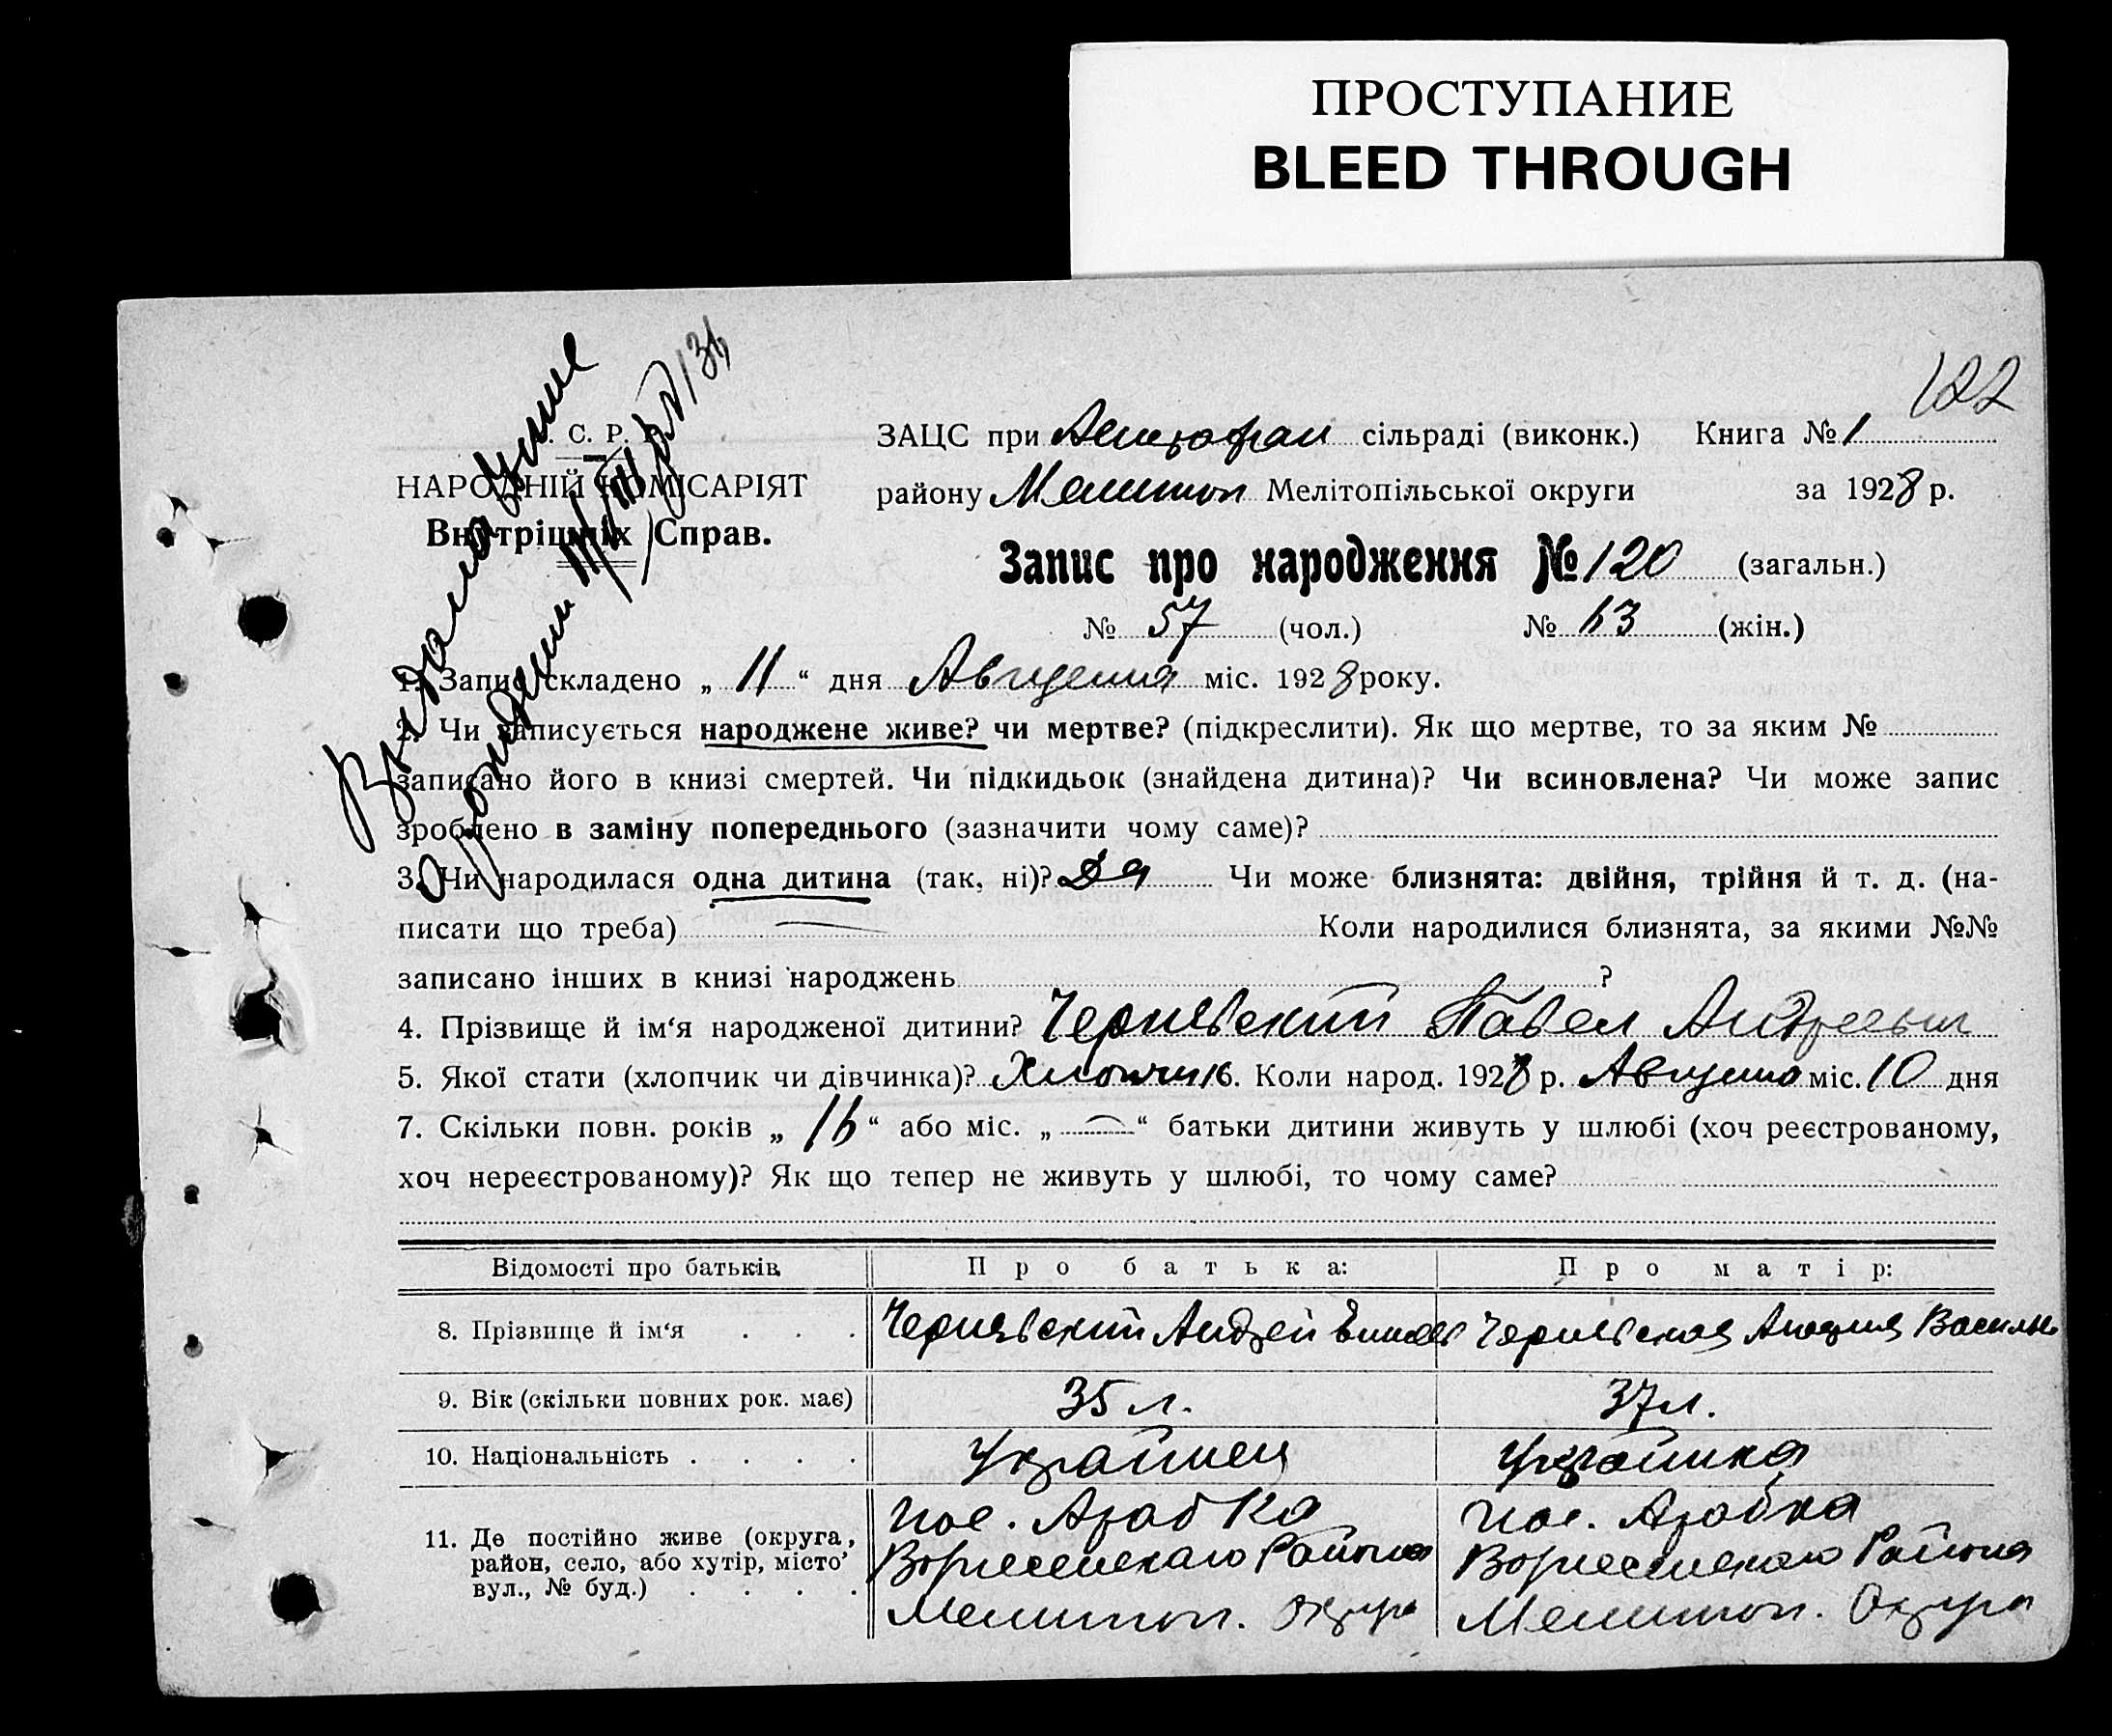 ПРОСТУПАНИЕ
BLEED THROUGH
122
С. Р. Р.
НАРОДНІЙ КОМІСАРІЯТ
Внутрішніх Справ.
ЗАЦС при сільраді (виконк.) Книга № 1
району Мелитоп Мелітопільської округи за 1928 р.
Запис про народження № 120 (загальн.)
№ 57 (чол.) № 63 (жін.)
1. Запис складено „ 11 “ дня Августа міс. 1928 року.
2. Чи записується народжене живе? чи мертве? (підкреслити). Як що мертве, то за яким №
записано його в книзі смертей. Чи підкидьок (знайдена дитина)? Чи всиновлена? Чи може запис
зроблено в заміну попереднього (зазначити чому саме)?
3. Чи народилася одна дитина (так, ні)? Да Чи може близнята: двійня, трійня й т. д. (на-
писати що треба) Коли народилися близнята, за якими №№
записано інших в книзі народжень ?
4. Прізвище й ім‘я народженої дитини? Чернявский Павел Андреевич
5. Якої стати (хлопчик чи дівчинка)? Хлопчик 6. Коли народ. 1928 р. Августа міс. 10 дня
7. Скільки повн. років „ 16 “ або міс. „ — “ батьки дитини живуть у шлюбі (хоч реєстрованому,
хоч нереєстрованому)? Як що тепер не живуть у шлюбі, то чому саме?
Відомості про батьків Про батька: Про матір:
8. Прізвище й ім‘я . . . Чернявский Андрей Чернявская Василь
9. Вік (скільки повних рок. має) 35 л. 37 л.
10. Національність . . . . Украйнец Украйнка
11. Де постійно живе (округа, пос. Арабка пос. Арабка
район, село, або хутір, місто’ Района Района
вул., № буд.) . . . . Мелитоп. Округа Мелитоп. Округа